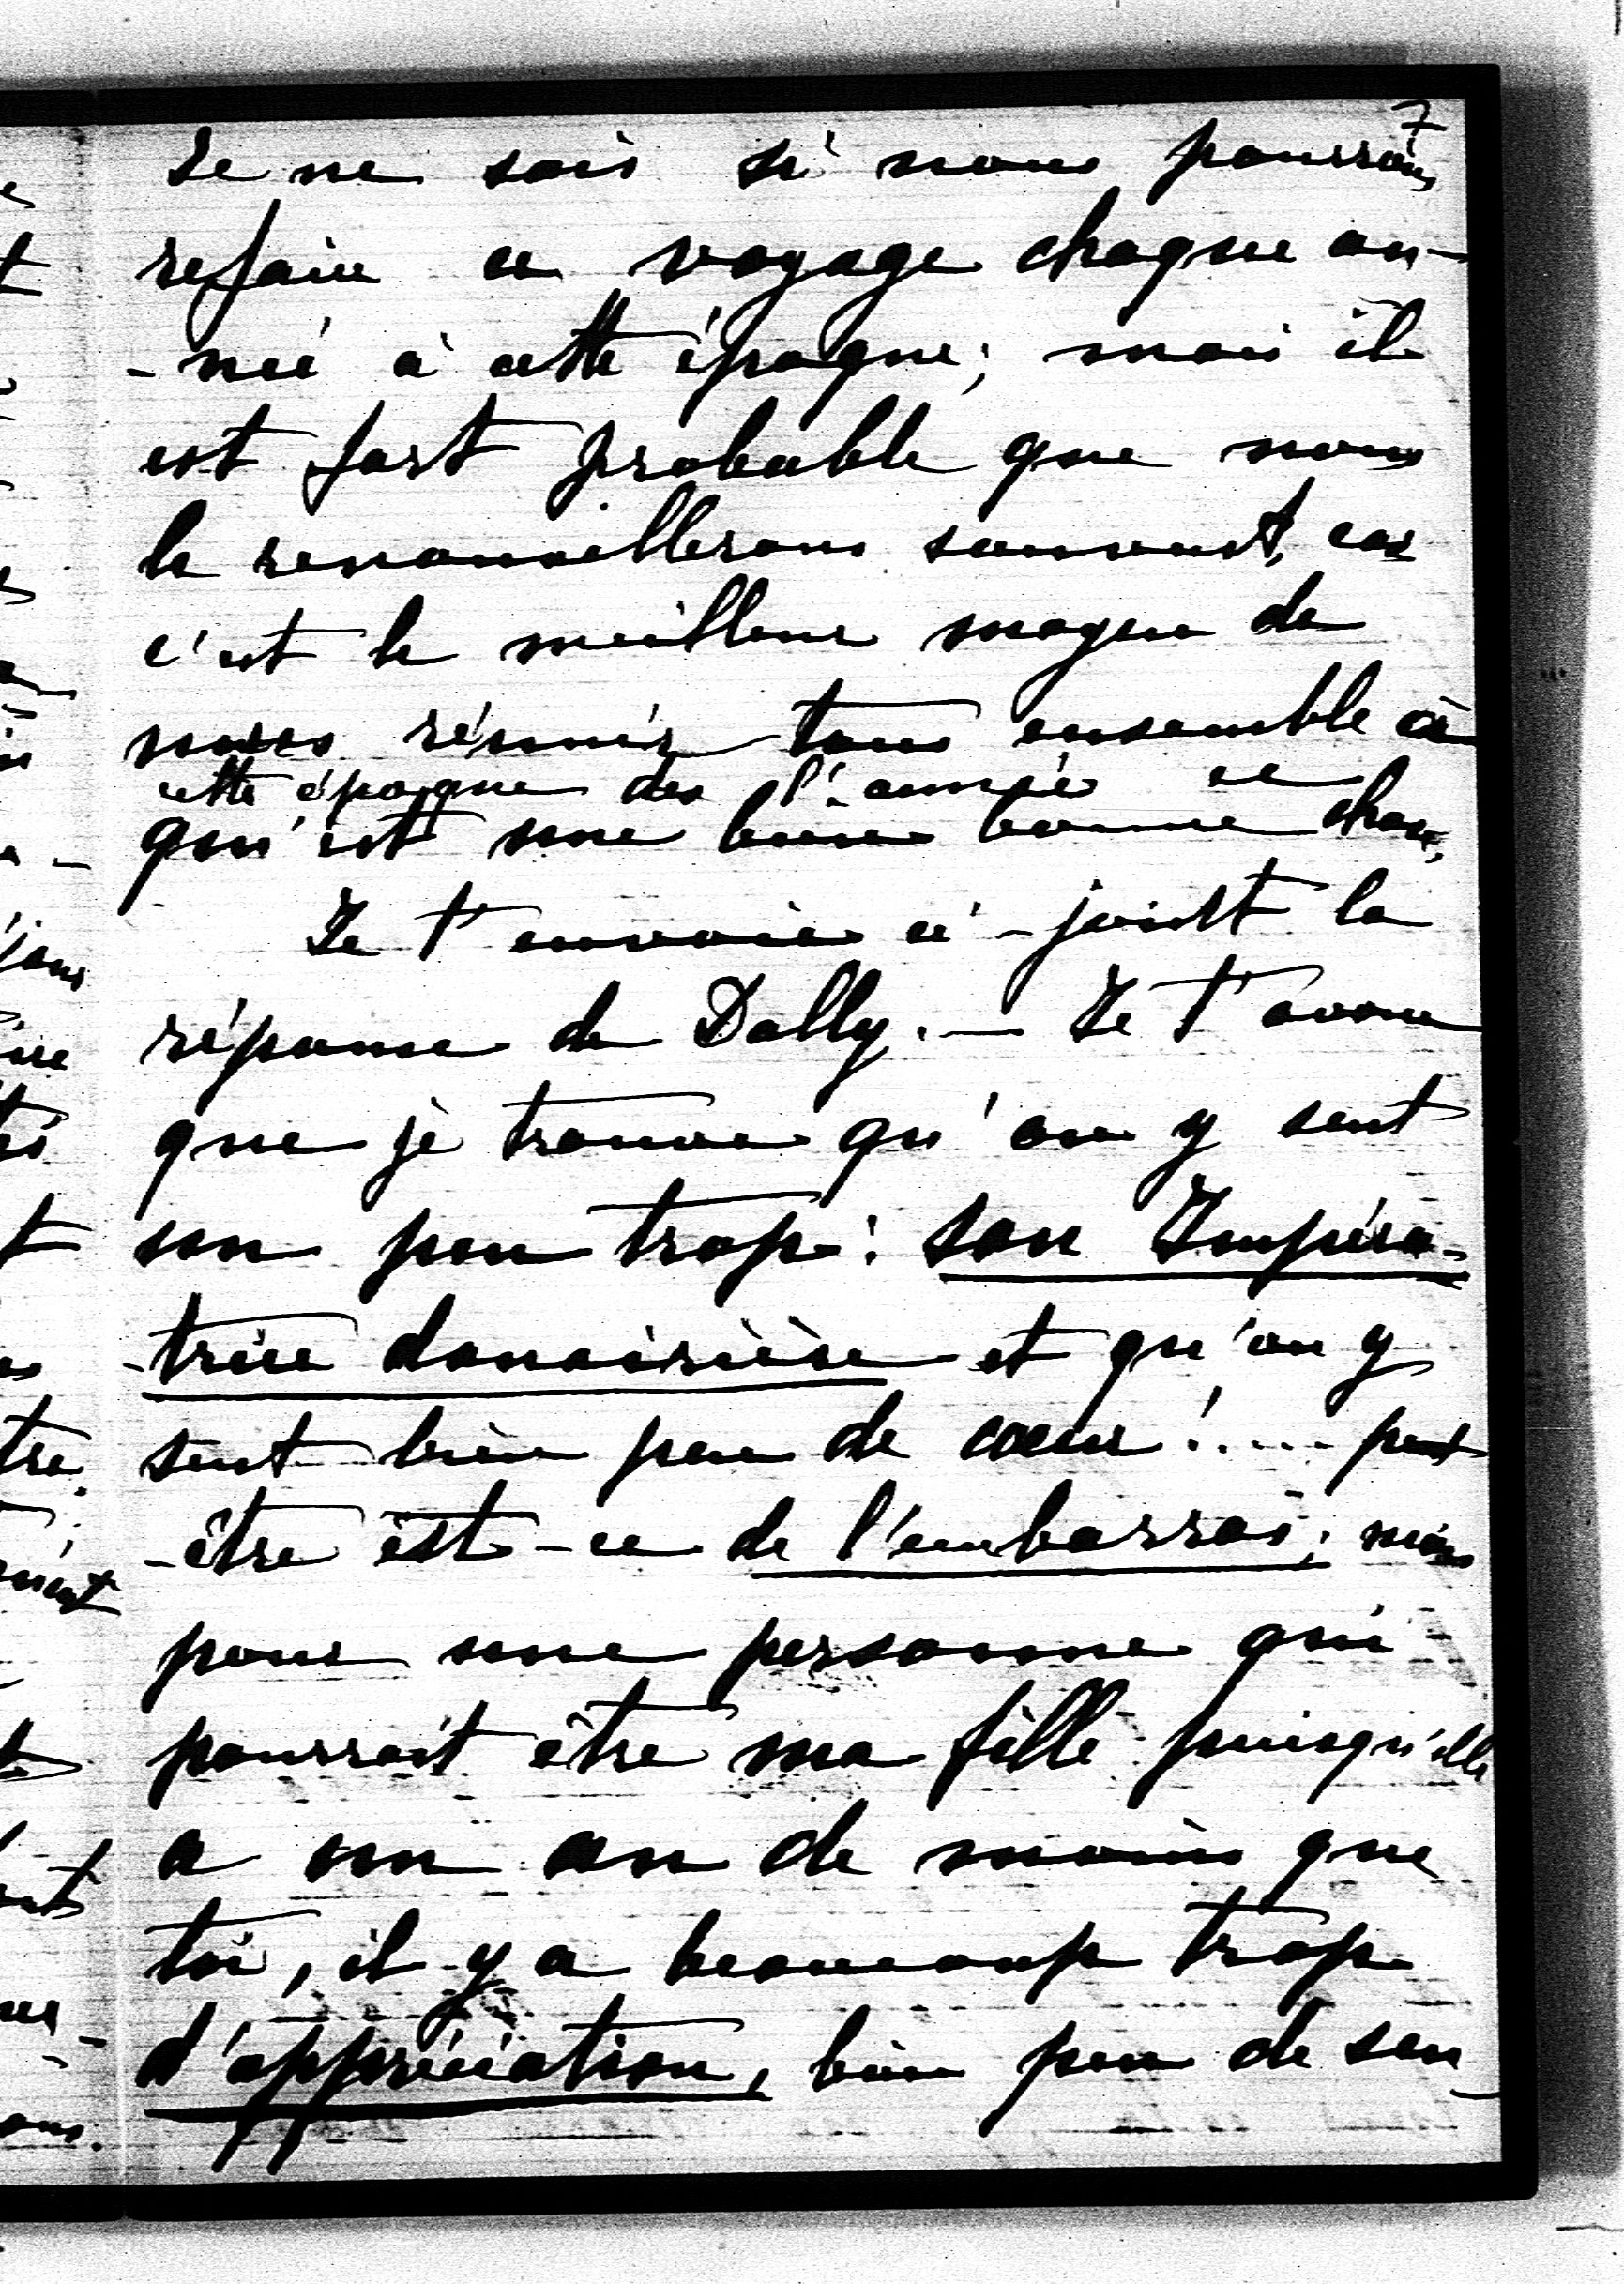 7
Je ne sais si nous pourrons
refaire ce voyage chaque an-
-née à cette époque; mais il
est fort probable que nous
le renouvellerons souvent, car
c'est le meilleur moyen de
nous réunir tous ensemble à
cette époque de l'année ce
qui est une bien bonne chose,
Je t'envoie ci-joint la
réponse de Dolly. — Je t'avoue
que je trouve qu'on y sent
un peu trop: son Impéra-
-trice douairière et qu'on y
sent bien peu de cœur!.... peut
-être est-ce de l'embarras; mais
pour une personne qui
pourrait être ma fille puisqu'elle
a un an de moins que
toi, il y a beaucoup trop
d'appréciation, bien peu de sen-